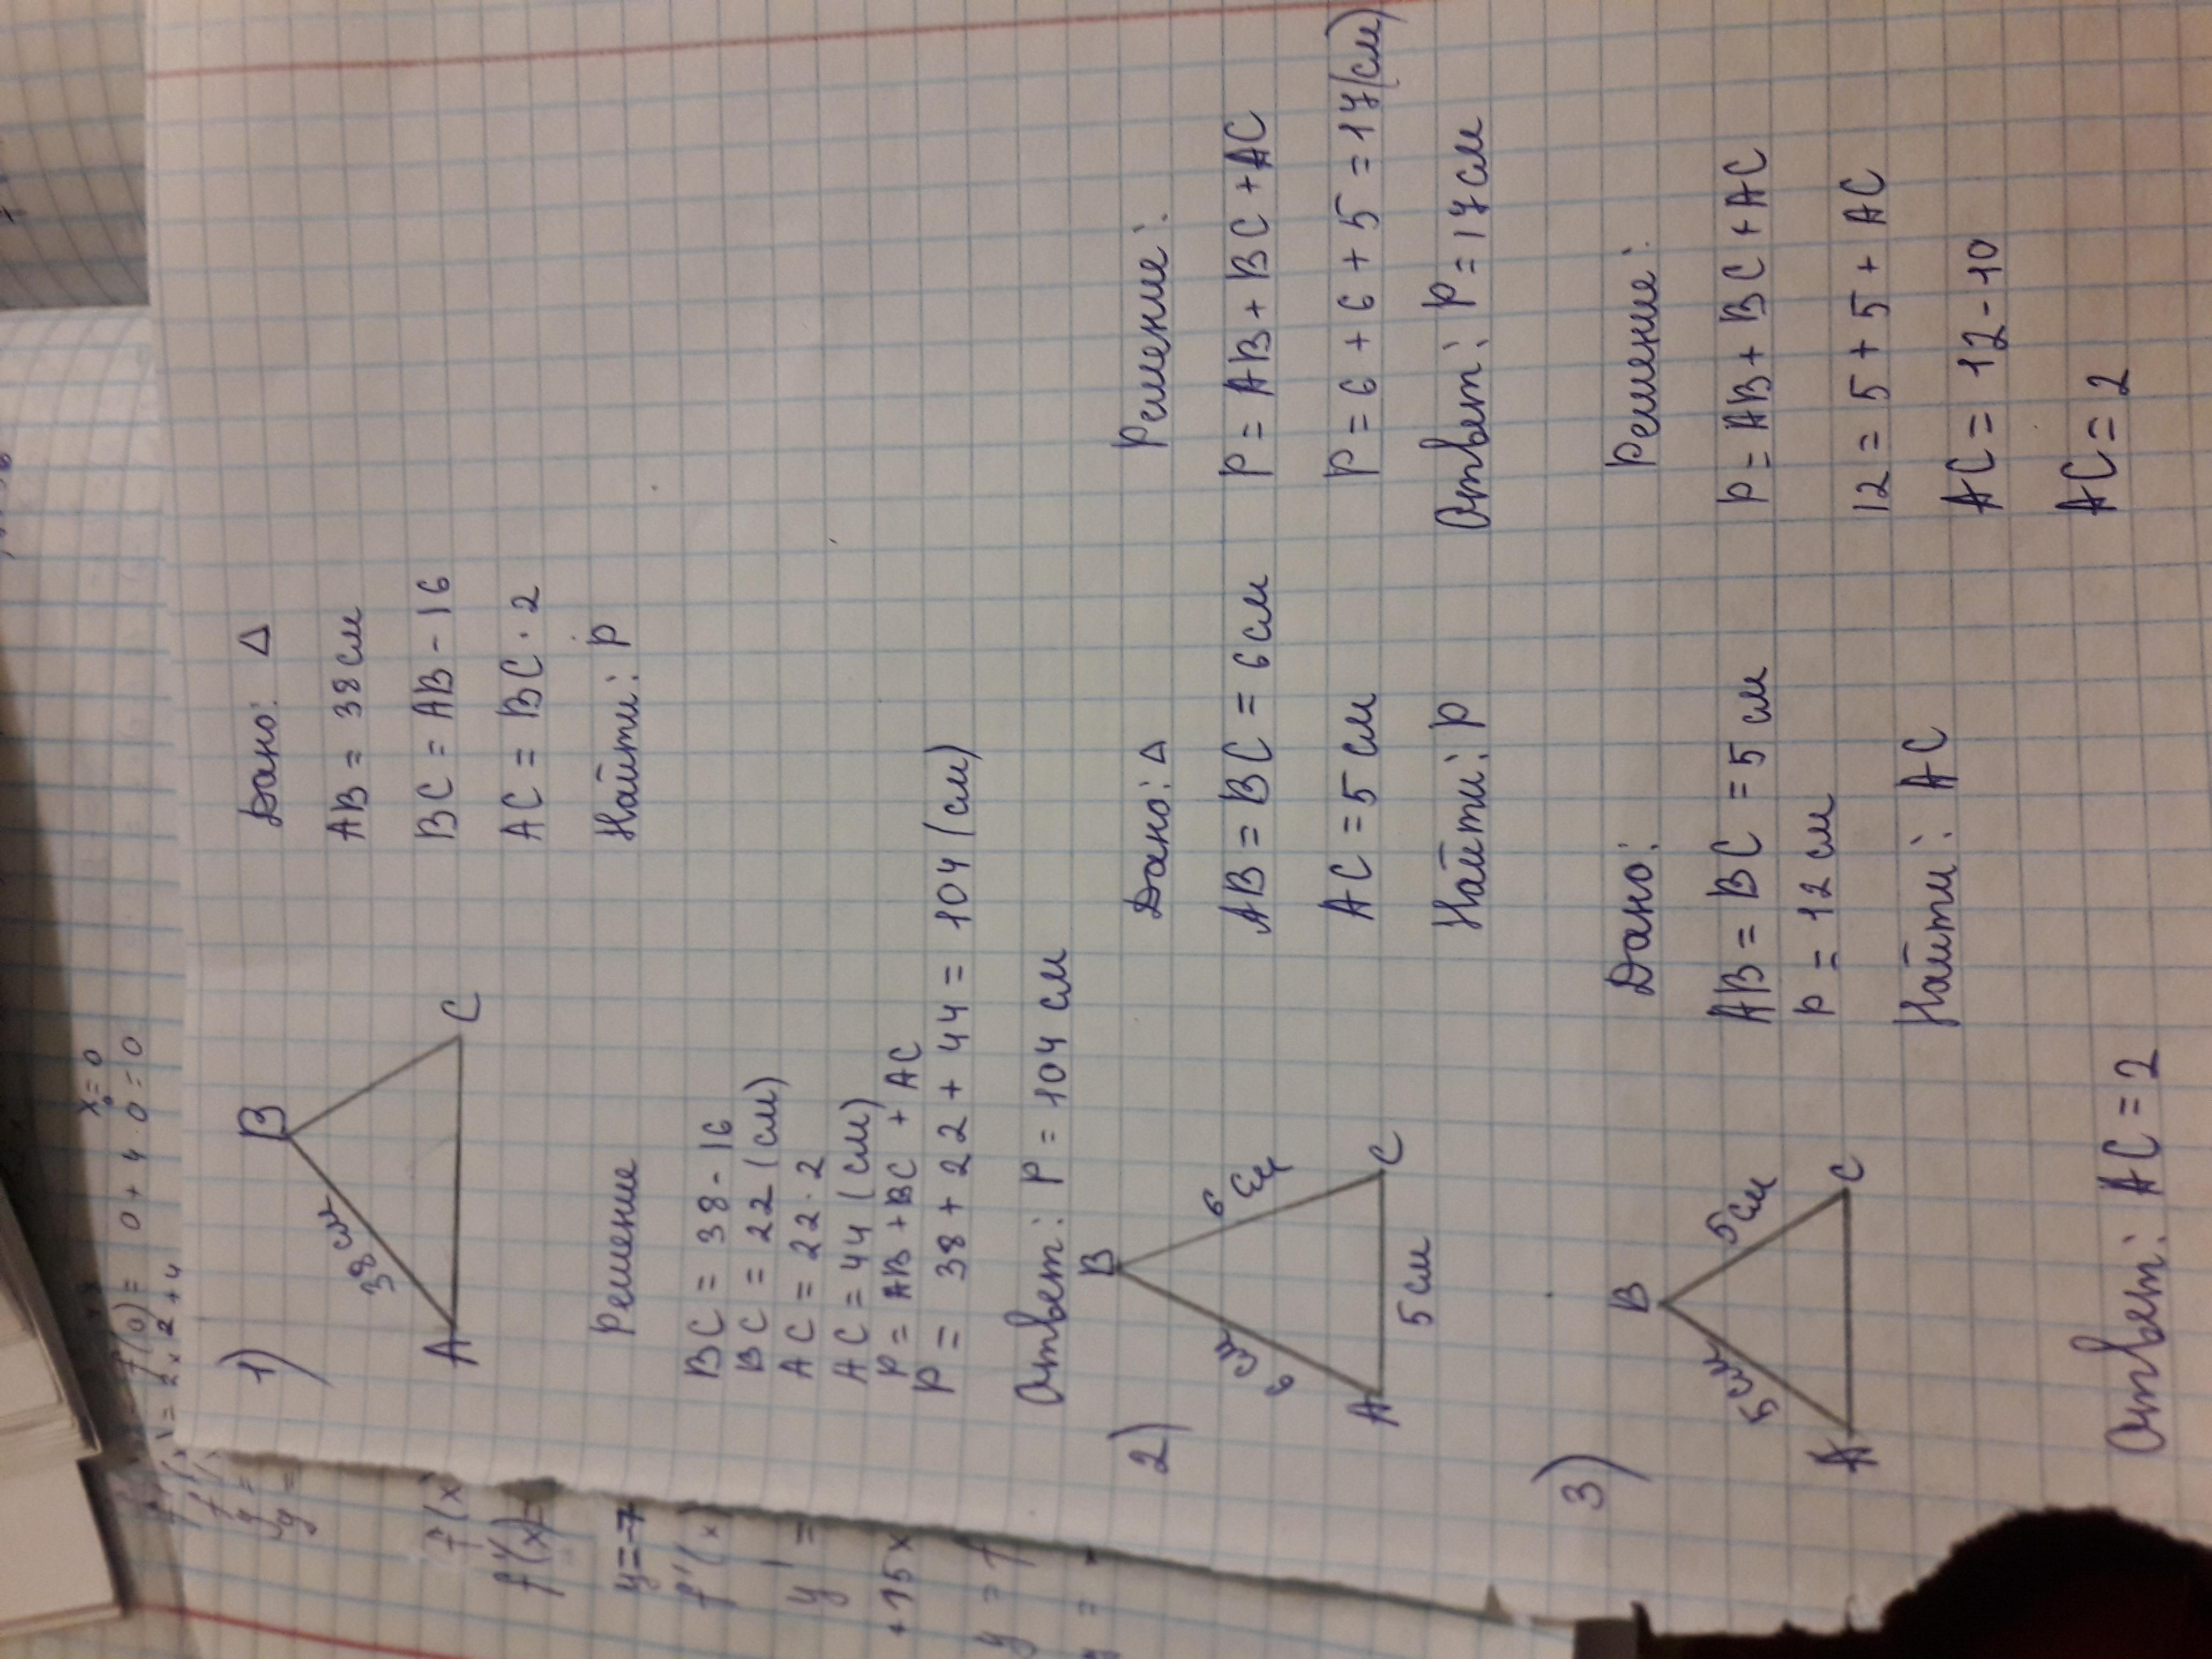 1)
B
38 см
A
C
Дано: Δ
AB = 38 см
BC = AB - 16
AC = BC · 2
Найти: P
Решение
BC = 38 - 16
BC = 22 (см)
AC = 22 · 2
AC = 44 (см)
P = AB + BC + AC
P = 38 + 22 + 44 = 104 (см)
Ответ: P = 104 см
2)
B
6 см
6 см
A
C
5 см
Дано: Δ
AB = BC = 6 см
AC = 5 см
Найти: P
Решение:
P = AB + BC + AC
P = 6 + 6 + 5 = 17 (см)
Ответ: P = 17 см
3)
B
5 см
5 см
A
C
Дано:
AB = BC = 5 см
P = 12 см
Найти: AC
Решение:
P = AB + BC + AC
12 = 5 + 5 + AC
AC = 12 - 10
AC = 2
Ответ: AC = 2
x₀ = 0
f(0) = 0 + 4 · 0 = 0
f(x)
f'(x) =
y = -7
f'(x)
y' =
+15x
y =